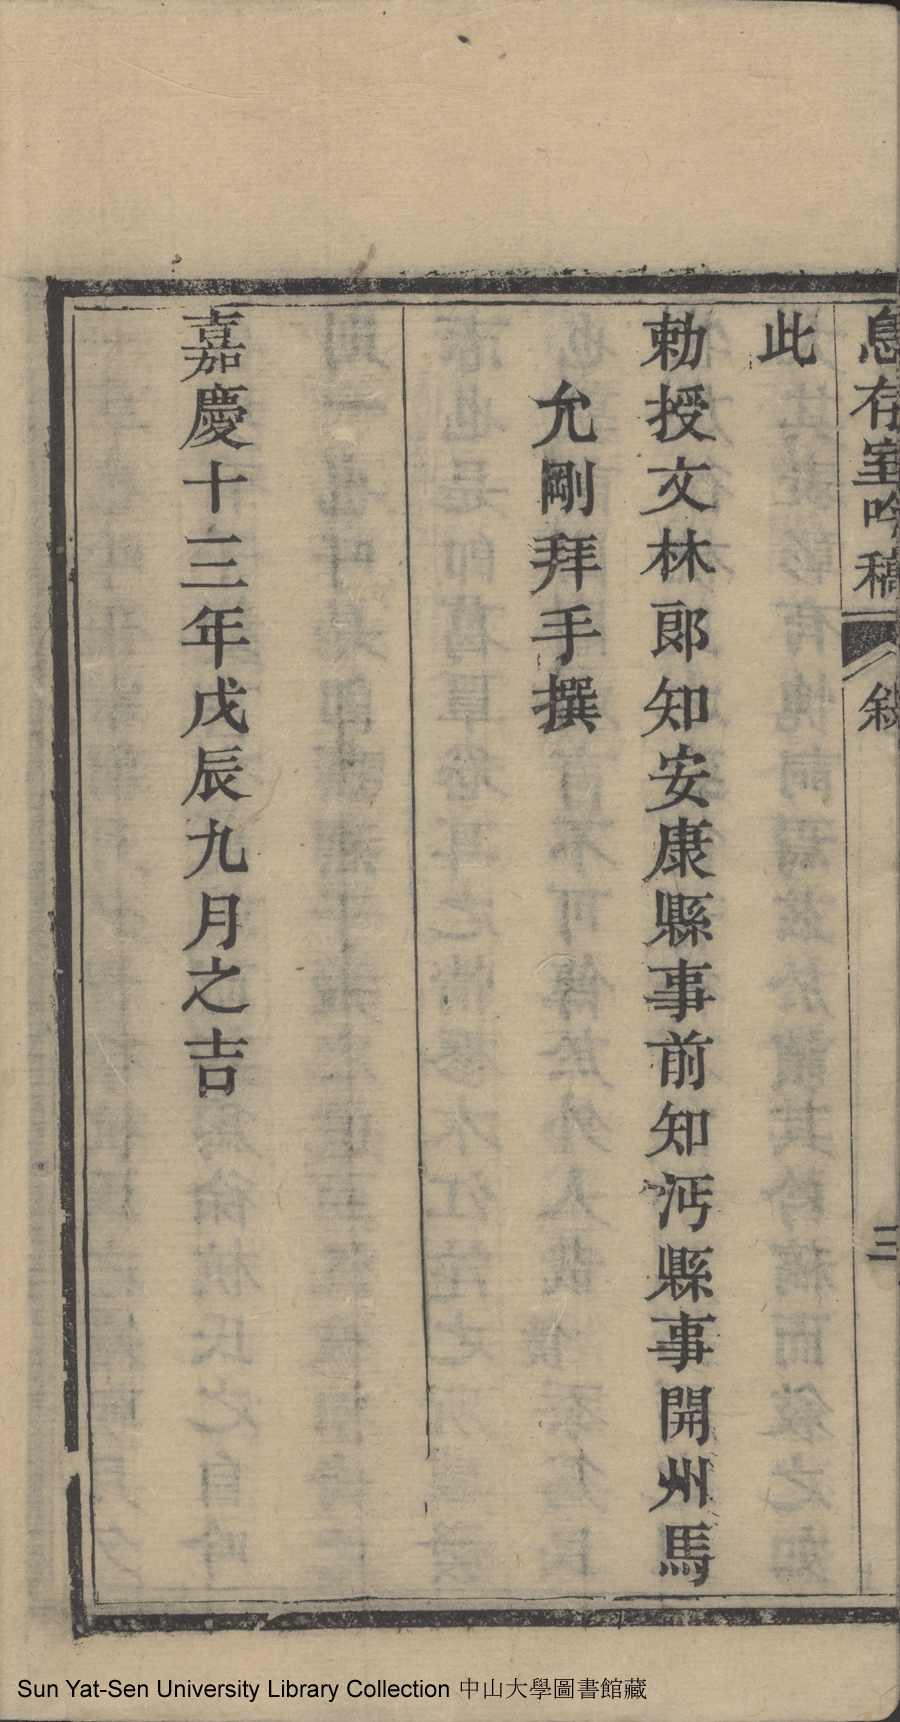 息存室吟稿 敘 三
此
勅授文林郎知安康縣事前知沔縣事開州馬
允剛拜手撰
嘉慶十三年戊辰九月之吉
Sun Yat-Sen University Library Collection 中山大學圖書館藏